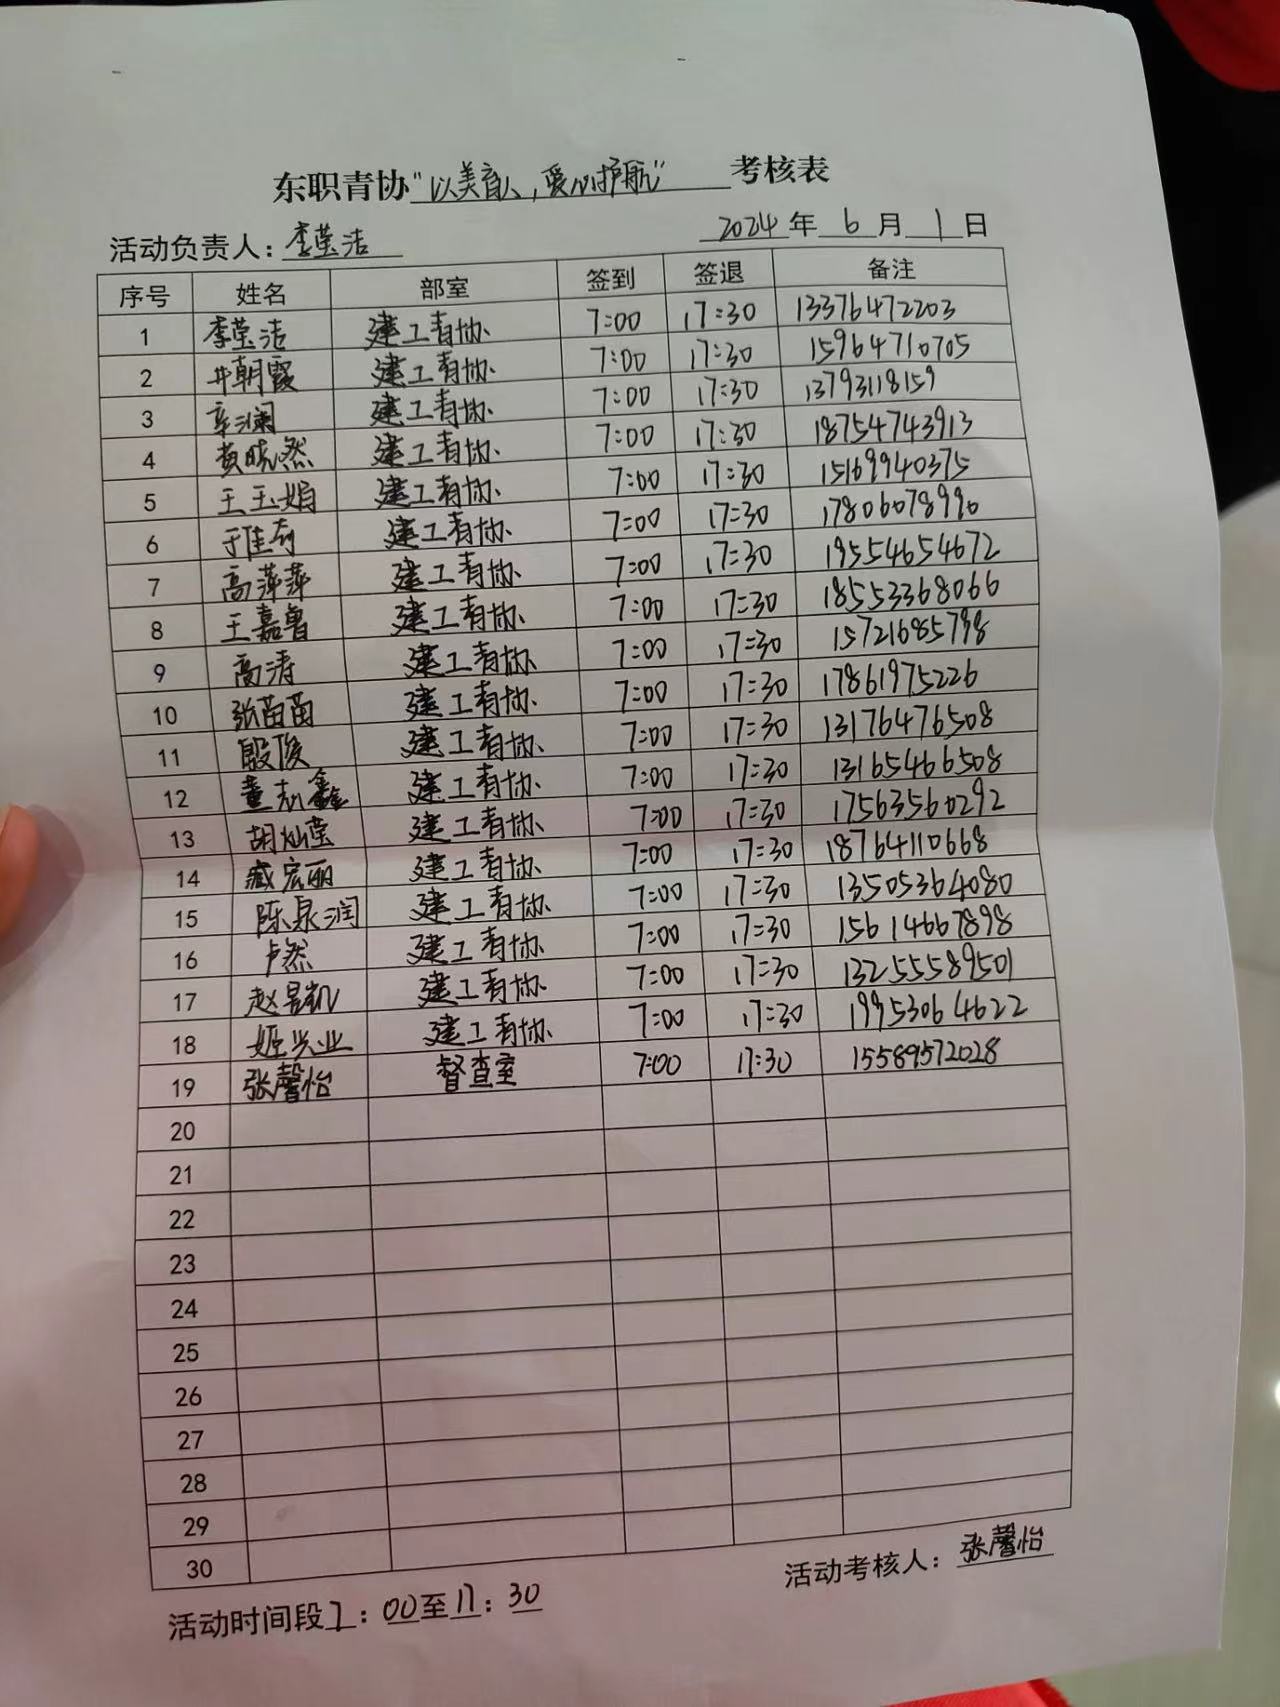 东职青协“以美育人，爱心护航”考核表
活动负责人：李莹洁 2024年6月1日
序号 姓名 部室 签到 签退 备注
1 李莹洁 建工青协 7:00 17:30 13376472203
2 井朝霞 建工青协 7:00 17:30 15964710705
3 辛澜 建工青协 7:00 17:30 13793118159
4 黄晓然 建工青协 7:00 17:30 18754743913
5 王玉娟 建工青协 7:00 17:30 15169940375
6 于佳奇 建工青协 7:00 17:30 17806078990
7 高萍萍 建工青协 7:00 17:30 19554654672
8 王嘉鲁 建工青协 7:00 17:30 18553368066
9 高涛 建工青协 7:00 17:30 15721685798
10 张苗苗 建工青协 7:00 17:30 17861975226
11 殷俊 建工青协 7:00 17:30 13176476508
12 董志鑫 建工青协 7:00 17:30 13165466508
13 胡灿莹 建工青协 7:00 17:30 17563560292
14 臧宏丽 建工青协 7:00 17:30 18764110668
15 陈泉润 建工青协 7:00 17:30 13505364080
16 卢然 建工青协 7:00 17:30 15614667898
17 赵昱凯 建工青协 7:00 17:30 13255589501
18 姬兴业 建工青协 7:00 17:30 19953064622
19 张馨怡 督查室 7:00 17:30 15589572028
20
21
22
23
24
25
26
27
28
29
30
活动考核人：张馨怡
活动时间段7：00至17：30